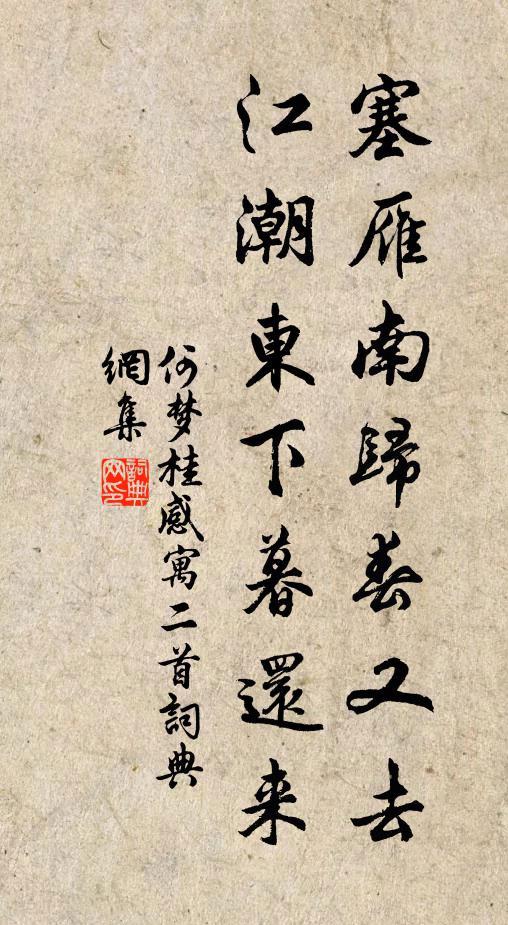 塞雁南歸春又去
江潮東下暮還来
何梦桂感寓二首詞典
網集
詞典网印